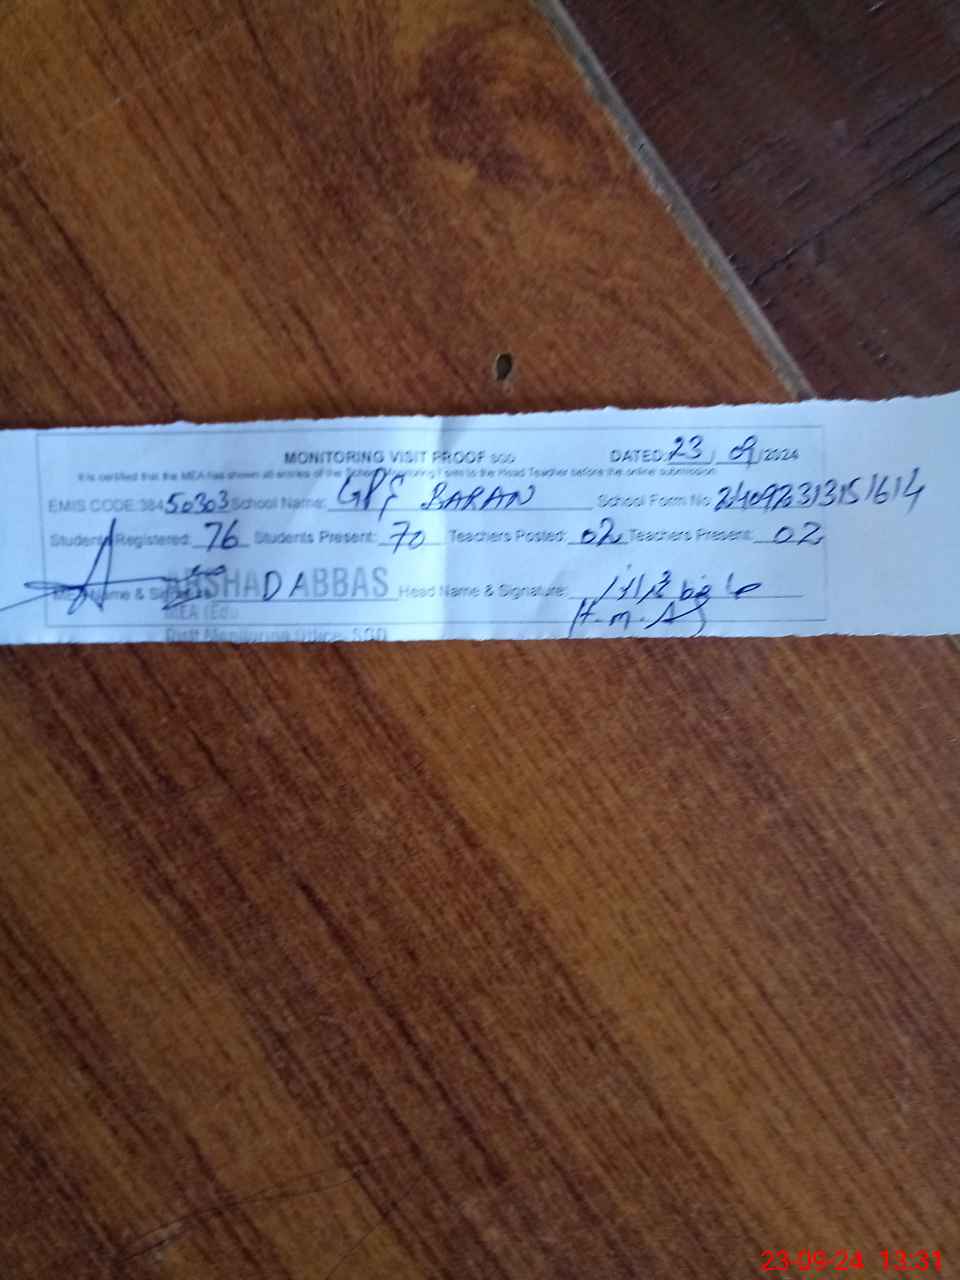 MONITORING VISIT PROOF SGD DATED: 23 / 09 / 2024
It is certified that the MEA has shown all entries of the School Monitoring Form to the Head Teacher before the online submission
EMIS CODE: 384 50303 School Name: GPS BARAN School Form No 2409231315 1614
Students Registered: 76 Students Present: 70 Teachers Posted: 02 Teachers Present: 02
MEA Name & Signature: ARSHAD ABBAS Head Name & Signature:
MEA (Edu H.M.
Distt Monitoring Office, SGD
23-09-24 13:31